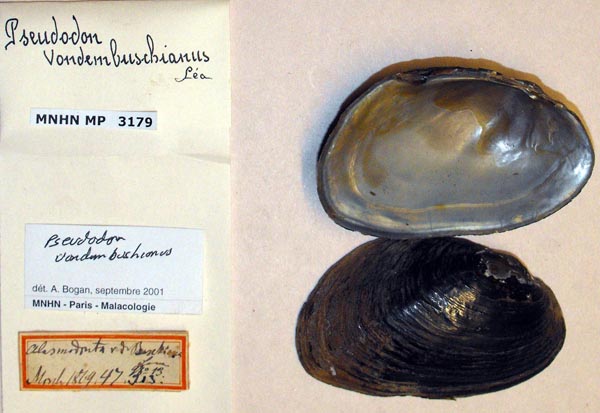 Pseudodon
vondembuschianus
Léa
MNHN MP 3179
Pseudodon
vondembuschianus
dét. A. Bogan, septembre 2001
MNHN - Paris - Malacologie
Alasmodonta v. d.
47